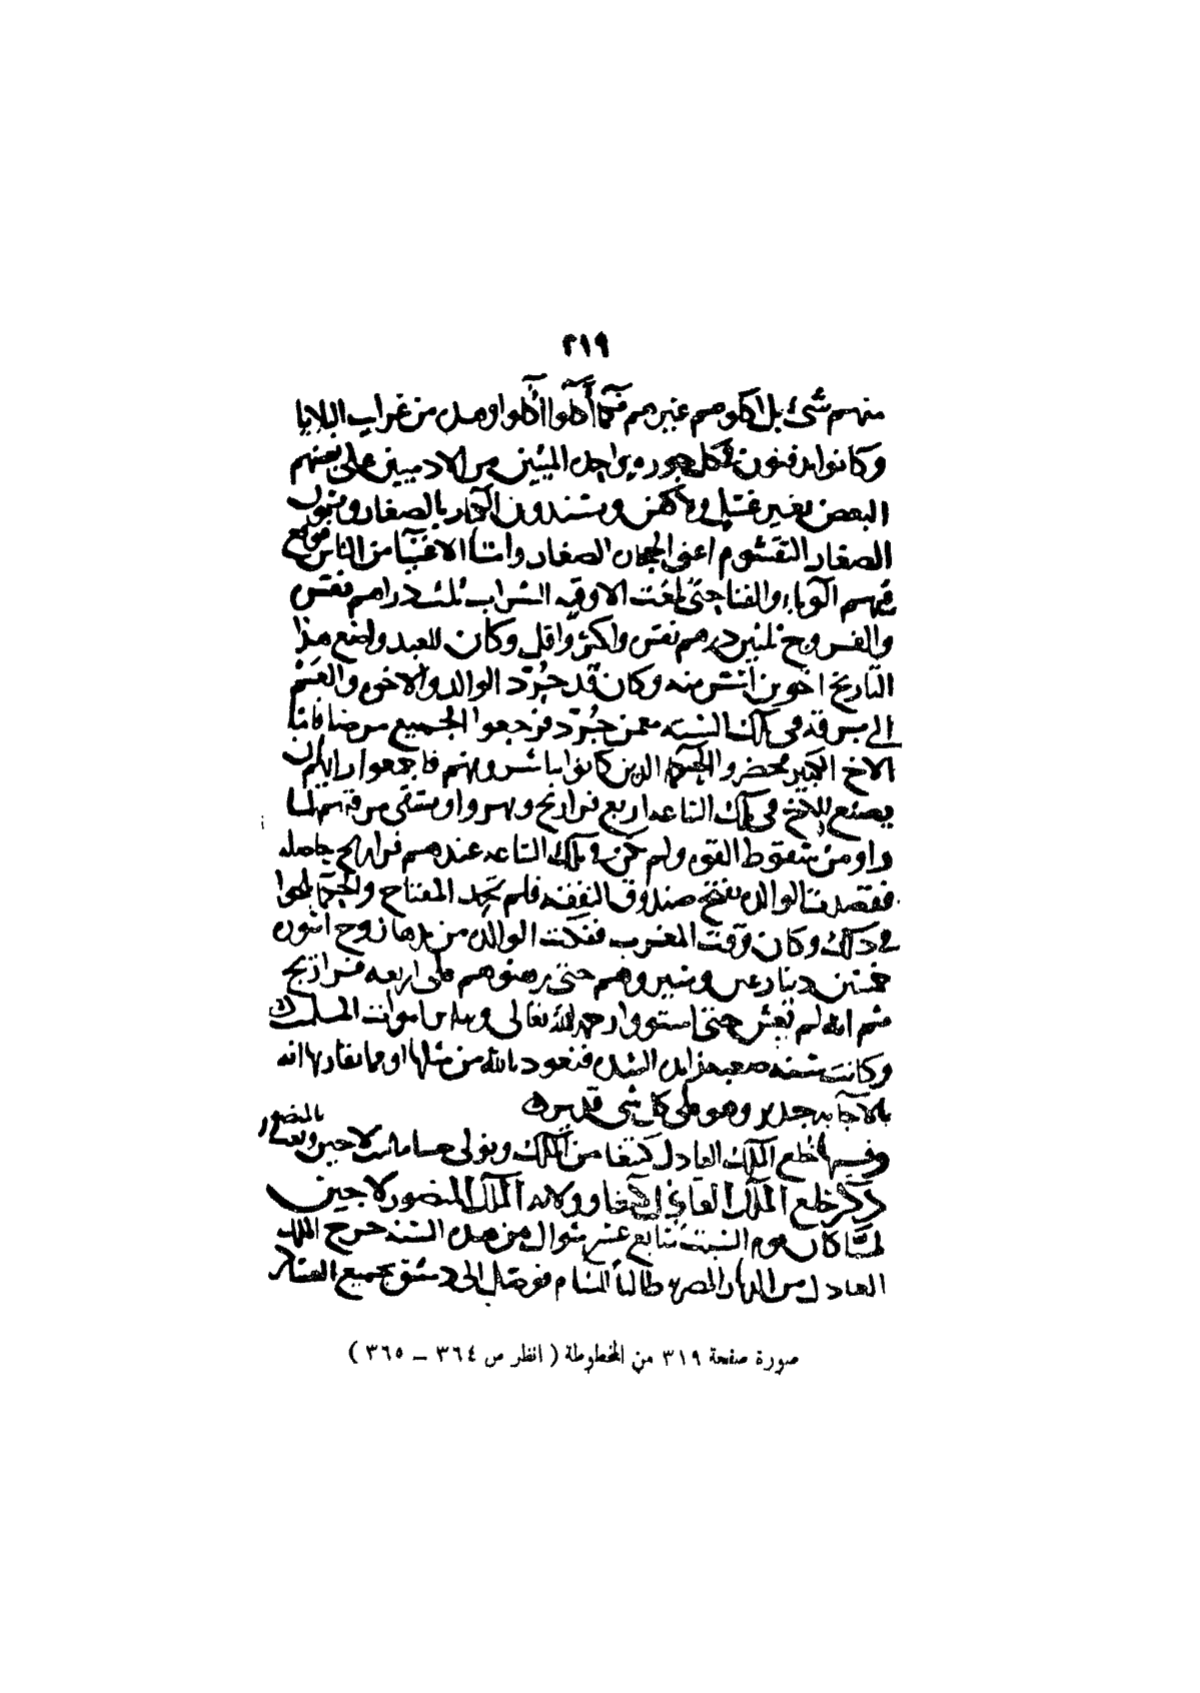 ٣١٩
منهم شئ بل اكلوهم غيرهم فكما أكلوا أُكلوا وهذه من غرايب البلايا
وكانوا يدفنون في كل حورويرا جدا الميتين من الادميين على بعضهم
البعض بغير غسل ولا كفن ويسندون الكبار بالصغار ويقول
الصغار التقشوم اعنى الحجار الصغار وامّا الاغنيا من الناس فوقع
فيهم الوباء والفنا حتى بلغت الاوقيه الشراب ثلث دراهم نقره
والفروج ثلثين درهم نقره واكثر واقل وكان للعبد واضع هذا
التاريخ اخوين أنشر منه وكان قد جُرّد الوالد والاخوه والغنم
الى برقه فى تلك السنه معمن جُرّد فرجعوا الجميع مرضا فامّا
الاخ الكبير محضر والحكما الذين كانوا يباشرونهم فاجمعوا رايهم ان
يصنع للاخ فى تلك الساعه اربع فراريج ويهروا ويستقى مرقتهم لما
راوه من سقوط القوه ولم تكن فى تلك الساعه عندهم فراريج حاصله
فقصدت الوالده تفتح صندوق النفقه فلم تجد المفتاح والحكما لحوا
فى ذلك وكان وقت المغرب ففكت الوالده من يدها زوج
خمسين دينار وسيروهم حتى رهنوهم على اربعه فراريج
ثم انه لم يعش حتى استووا رحمه الله تعالى وساير اموات المسلمين
وكانت سنه صعبه زايده الشده فنعود بالله من مثلها او ما يقاربها انه
بالاجابه جدير وهو على كل شى قدير
وفيها خلع الملك العادل كتبغا من الملك وتولى حسام الدين لاجين ونعت بالمنصور
ذكر خلع الملك العادل كتبغا وولايه الملك المنصور لاجين
لمّا كان يوم السبت سابع عشر شوال من هذه السنه خرج الملك
العادل من الديار المصريه طالباً للشام فوصل الى دمشق بجميع العساكر
صورة صفحة ٣١٩ من المخطوطة ( انظر ص ٣٦٤ – ٣٦٥ )